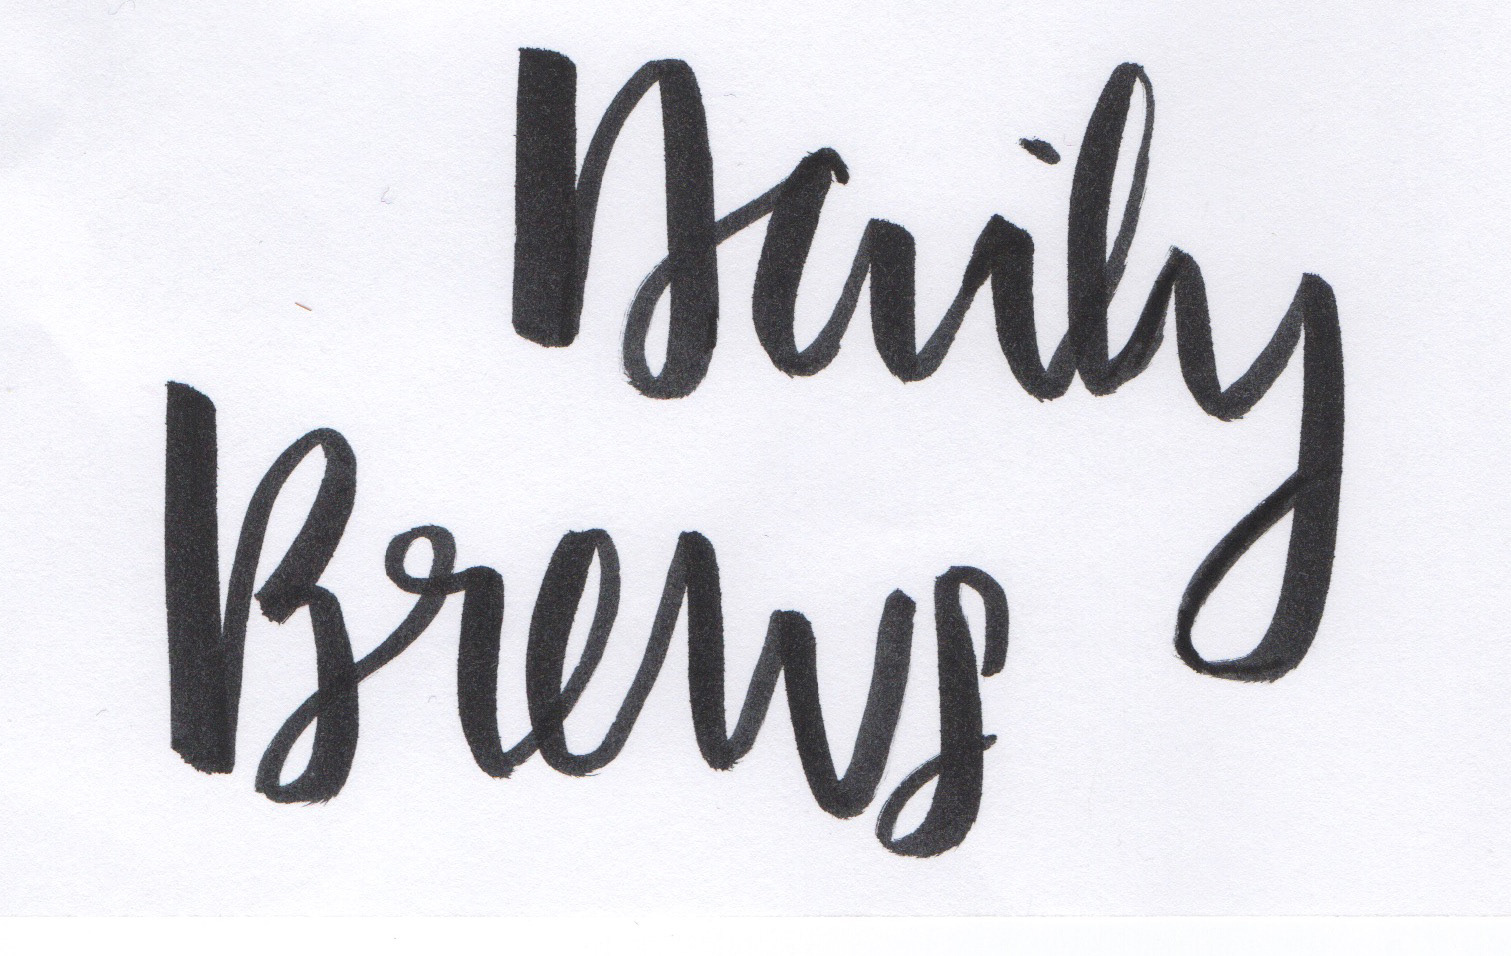 Daily
Brews